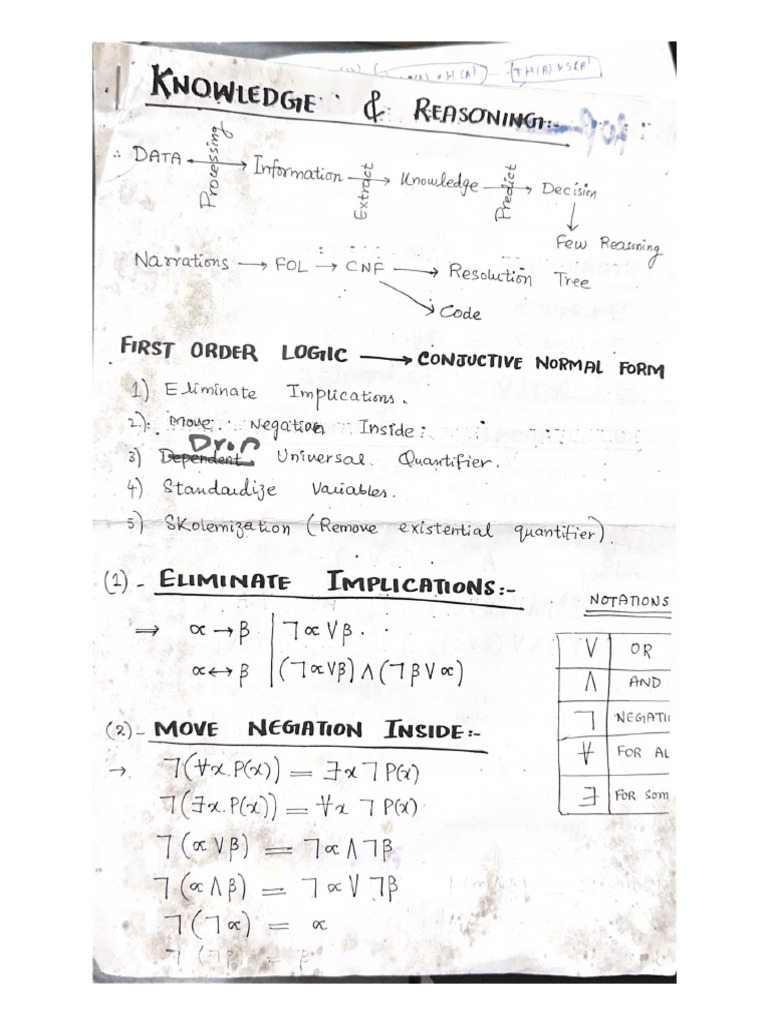 H(A)
(7H(B) V S(B)
KNOWLEDGE & REASONING:-
∴ DATA ↔ Information → Knowledge → Decision
Processing
Extract
Predict
↓
Few Reasoning
Narrations → FOL → CNF → Resolution Tree
↘ Code
FIRST ORDER LOGIC → CONJUCTIVE NORMAL FORM
1) Eliminate Implications.
2) Move Negation Inside:
Drop
3) Dependent Universal Quantifier.
4) Standardize Variables.
5) Skolemization (Remove existential quantifier).
(1) - ELIMINATE IMPLICATIONS:-
⇒ α → β | ¬α V β
α ↔ β | (¬α V β) ∧ (¬β V α)
NOTATIONS
V OR
∧ AND
¬ NEGATI
∀ FOR AL
∃ FOR Som
(2) - MOVE NEGATION INSIDE:-
→ ¬(∀x. P(x)) = ∃x ¬P(x)
¬(∃x. P(x)) = ∀x ¬P(x)
¬(α V β) = ¬α ∧ ¬β
¬(α ∧ β) = ¬α V ¬β
¬(¬α) = α
¬(¬β) = β